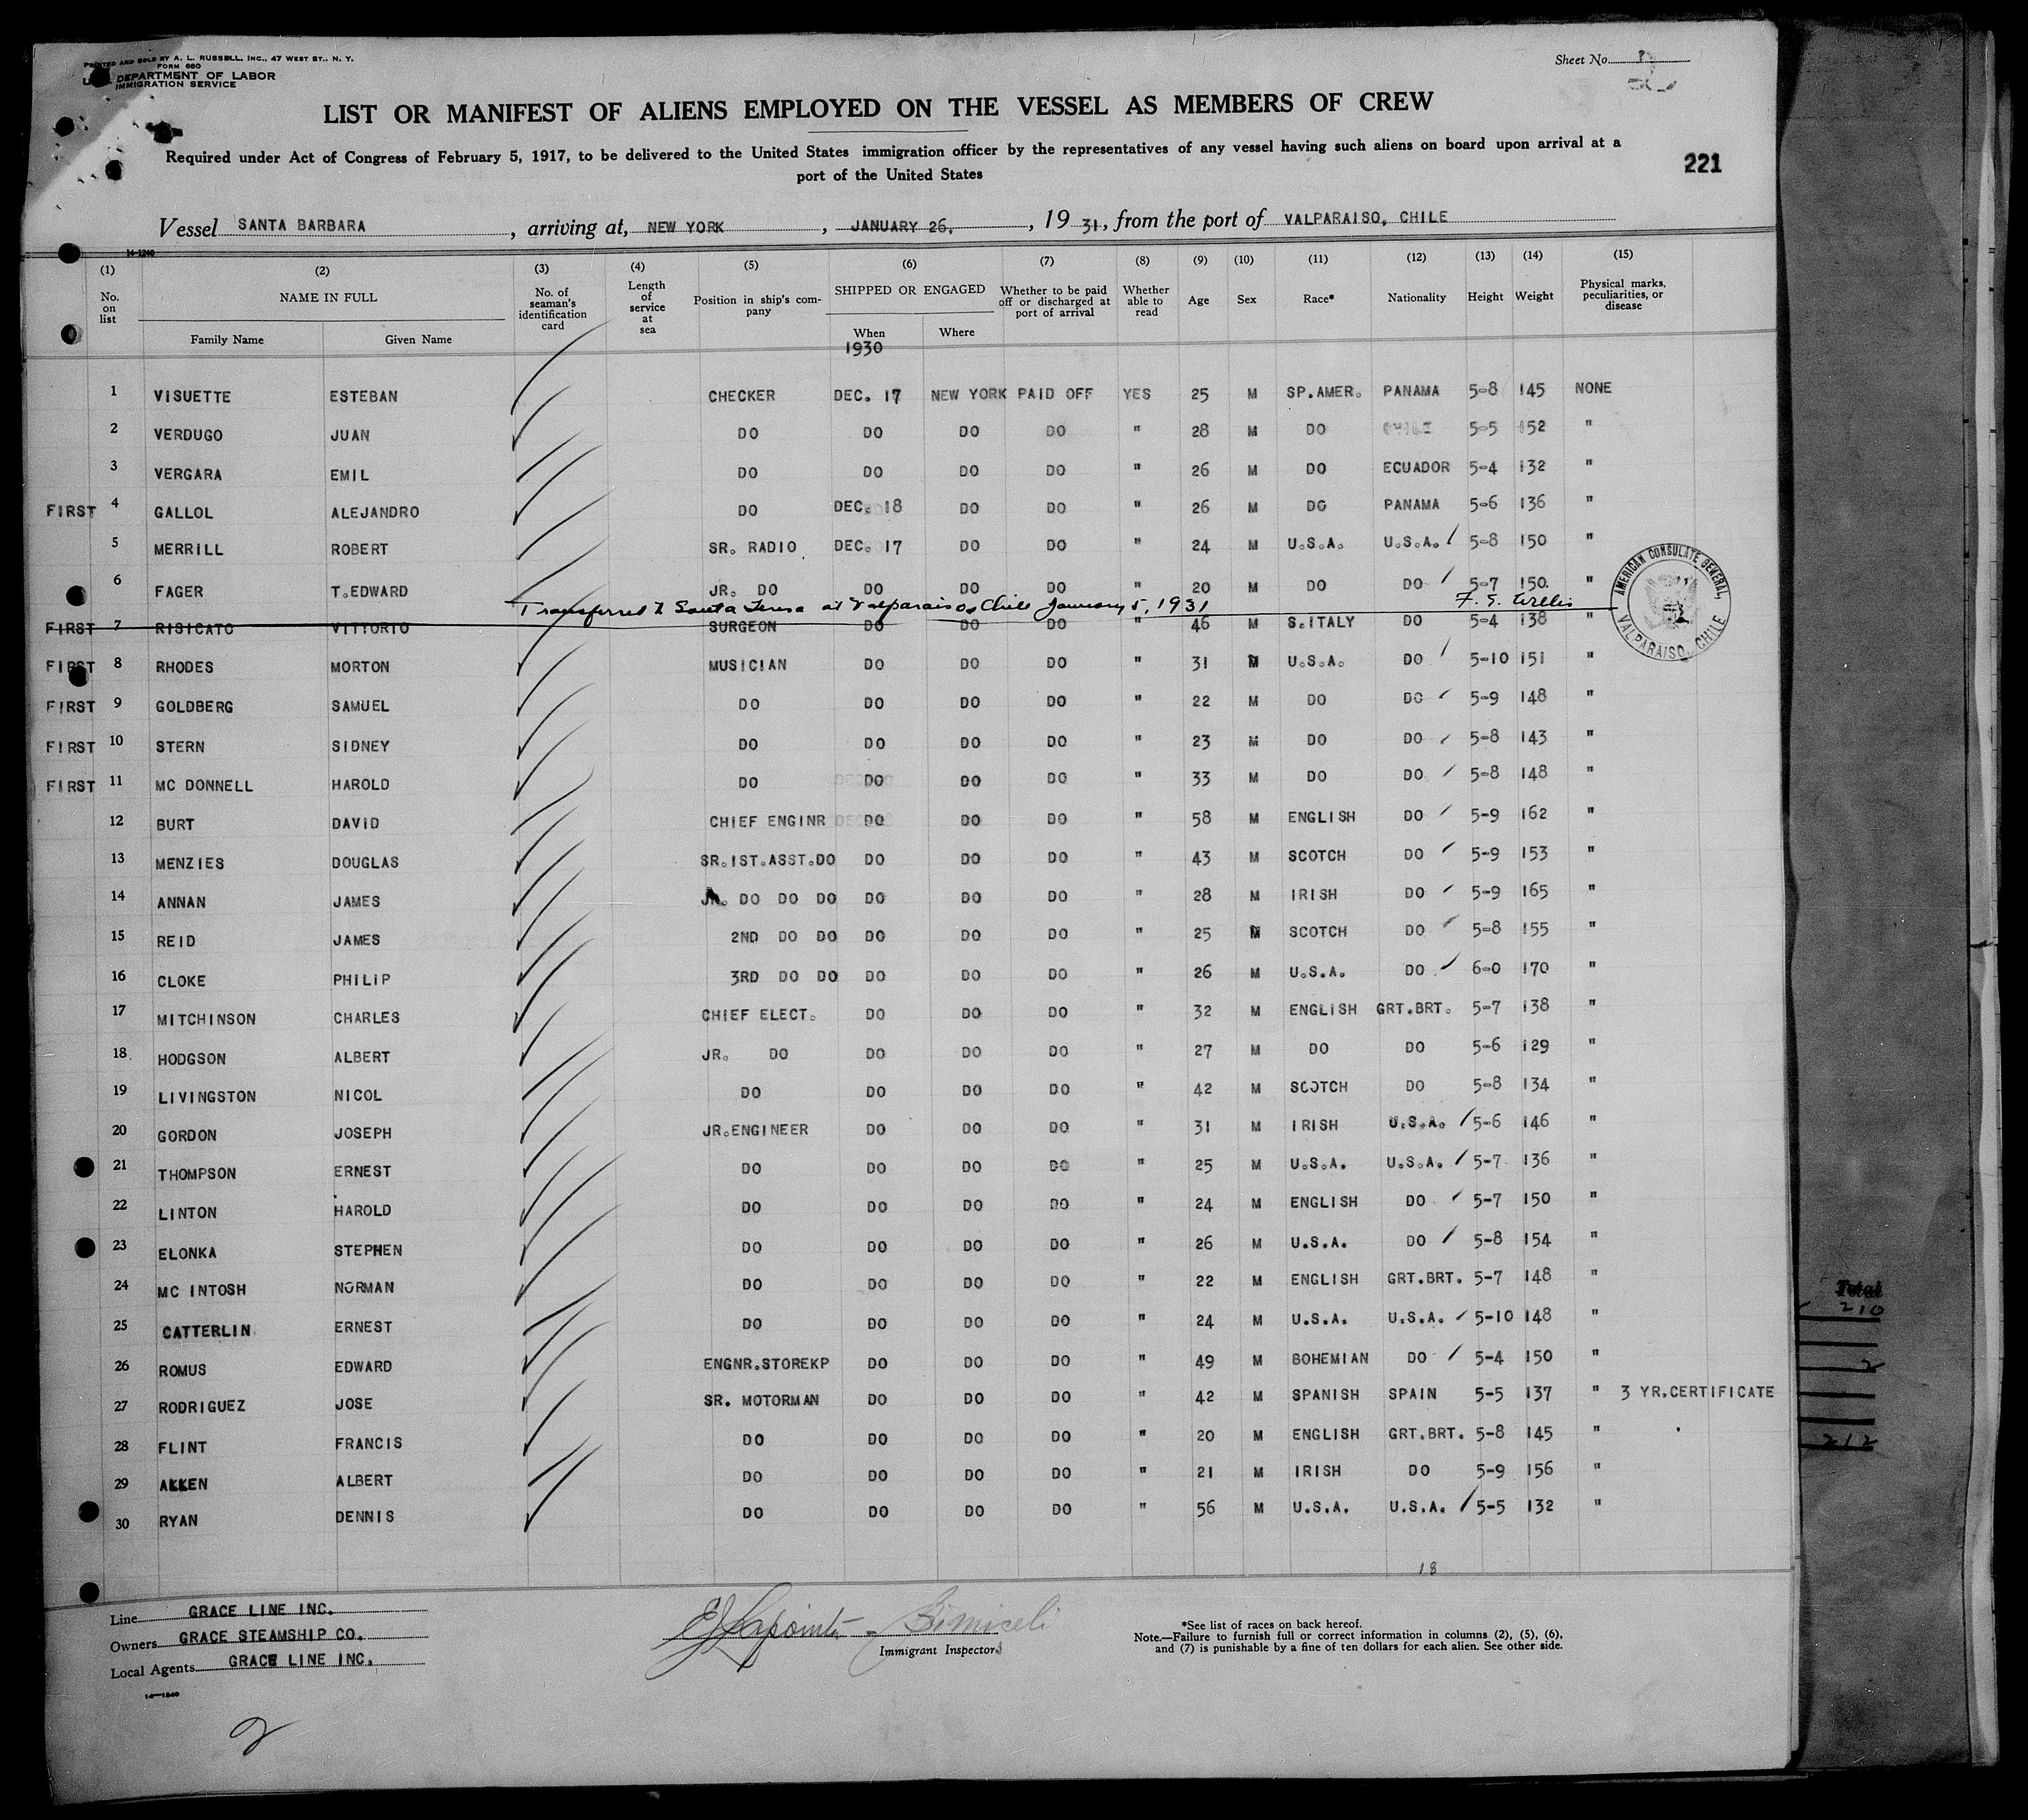 PRINTED AND SOLD BY A. L. RUSSELL, INC., 47 WEST ST., N. Y.
FORM 680
U. S. DEPARTMENT OF LABOR
IMMIGRATION SERVICE
Sheet No.
LIST OR MANIFEST OF ALIENS EMPLOYED ON THE VESSEL AS MEMBERS OF CREW
Required under Act of Congress of February 5, 1917, to be delivered to the United States immigration officer by the representatives of any vessel having such aliens on board upon arrival at a
port of the United States
221
Vessel SANTA BARBARA, arriving at, NEW YORK, JANUARY 26, 1931, from the port of VALPARAISO, CHILE
14-1240
(1) (2) (3) (4) (5) (6) (7) (8) (9) (10) (11) (12) (13) (14) (15)
No. on list NAME IN FULL No. of seaman's identification card Length of service at sea Position in ship's company SHIPPED OR ENGAGED Whether to be paid off or discharged at port of arrival Whether able to read Age Sex Race* Nationality Height Weight Physical marks, peculiarities, or disease
Family Name Given Name When Where
1930
1 VISUETTE ESTEBAN CHECKER DEC. 17 NEW YORK PAID OFF YES 25 M SP.AMER. PANAMA 5-8 145 NONE
2 VERDUGO JUAN DO DO DO DO " 28 M DO CHILE 5-5 152 "
3 VERGARA EMIL DO DO DO DO " 26 M DO ECUADOR 5-4 132 "
FIRST 4 GALLOL ALEJANDRO DO DEC. 18 DO DO " 26 M DO PANAMA 5-6 136 "
5 MERRILL ROBERT SR. RADIO DEC. 17 DO DO " 24 M U.S.A. U.S.A. 5-8 150 "
6 FAGER T.EDWARD JR. DO DO DO DO " 20 M DO DO 5-7 150 "
Transferred to Santa Teresa at Valparaiso, Chile January 5, 1931 F. S. Willis
FIRST 7 RISICATO VITTORIO SURGEON DO DO DO " 46 M S.ITALY DO 5-4 138 "
AMERICAN CONSULATE GENERAL, VALPARAISO, CHILE
FIRST 8 RHODES MORTON MUSICIAN DO DO DO " 31 M U.S.A. DO 5-10 151 "
FIRST 9 GOLDBERG SAMUEL DO DO DO DO " 22 M DO DO 5-9 148 "
FIRST 10 STERN SIDNEY DO DO DO DO " 23 M DO DO 5-8 143 "
FIRST 11 MC DONNELL HAROLD DO DO DO DO " 33 M DO DO 5-8 148 "
12 BURT DAVID CHIEF ENGINR DO DO DO " 58 M ENGLISH DO 5-9 162 "
13 MENZIES DOUGLAS SR.IST.ASST.DO DO DO DO " 43 M SCOTCH DO 5-9 153 "
14 ANNAN JAMES JR. DO DO DO DO DO DO " 28 M IRISH DO 5-9 165 "
15 REID JAMES 2ND DO DO DO DO DO " 25 M SCOTCH DO 5-8 155 "
16 CLOKE PHILIP 3RD DO DO DO DO DO " 26 M U.S.A. DO 6-0 170 "
17 MITCHINSON CHARLES CHIEF ELECT. DO DO DO " 32 M ENGLISH GRT.BRT. 5-7 138 "
18 HODGSON ALBERT JR. DO DO DO DO " 27 M DO DO 5-6 129 "
19 LIVINGSTON NICOL DO DO DO DO " 42 M SCOTCH DO 5-8 134 "
20 GORDON JOSEPH JR.ENGINEER DO DO DO " 31 M IRISH U.S.A. 5-6 146 "
21 THOMPSON ERNEST DO DO DO DO " 25 M U.S.A. U.S.A. 5-7 136 "
22 LINTON HAROLD DO DO DO DO " 24 M ENGLISH DO 5-7 150 "
23 ELONKA STEPHEN DO DO DO DO " 26 M U.S.A. DO 5-8 154 "
24 MC INTOSH NORMAN DO DO DO DO " 22 M ENGLISH GRT.BRT. 5-7 148 "
25 CATTERLIN ERNEST DO DO DO DO " 24 M U.S.A. U.S.A. 5-10 148 "
26 ROMUS EDWARD ENGNR.STOREKP DO DO DO " 49 M BOHEMIAN DO 5-4 150 "
27 RODRIGUEZ JOSE SR. MOTORMAN DO DO DO " 42 M SPANISH SPAIN 5-5 137 " 3 YR.CERTIFICATE
28 FLINT FRANCIS DO DO DO DO " 20 M ENGLISH GRT.BRT. 5-8 145 "
29 ALLEN ALBERT DO DO DO DO " 21 M IRISH DO 5-9 156 "
30 RYAN DENNIS DO DO DO DO " 56 M U.S.A. U.S.A. 5-5 132 "
18
Total
210
2
212
Line GRACE LINE INC.
Owners GRACE STEAMSHIP CO.
Local Agents GRACE LINE INC.
14-1240
Immigrant Inspector
*See list of races on back hereof.
Note.—Failure to furnish full or correct information in columns (2), (5), (6),
and (7) is punishable by a fine of ten dollars for each alien. See other side.
2